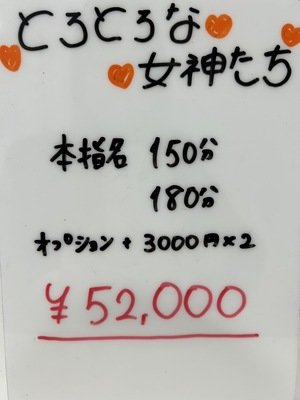 とろとろな
女神たち
本指名 150分
180分
オプション + 3000円×2
¥52,000